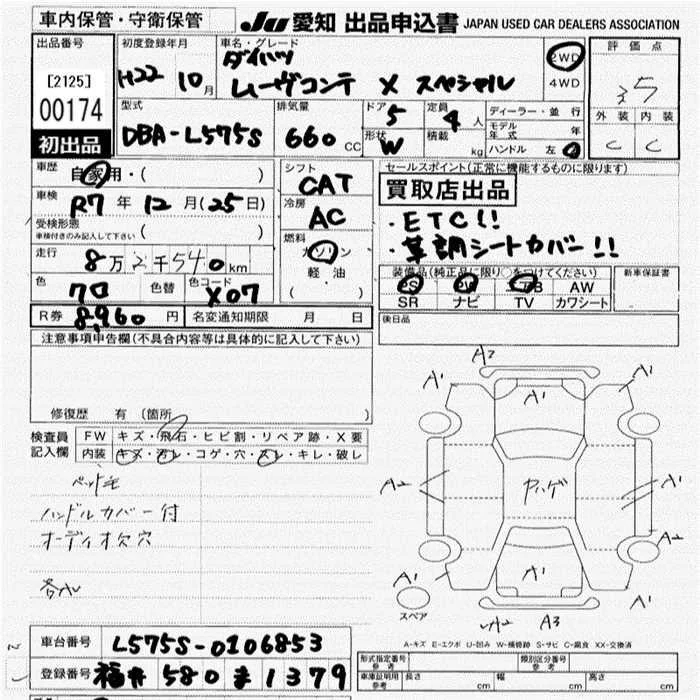 車内保管・守衛保管 JU 愛知 出品申込書 JAPAN USED CAR DEALERS ASSOCIATION
出品番号 初度登録年月 車名・グレード 評価点
[2125] H22 10月 ダイハツ 2WD
00174 ムーヴコンテ X スペシャル 4WD 5
型式 排気量 ドア 5 定員 4人 ディーラー・並行 外装 内装
初出品 DBA-L575S 660cc 形状 W 積載 kg モデル年式 年 C C
ハンドル 左
車歴 自家用・( ) シフト CAT セールスポイント(正常に機能するものに限ります)
車検 R7年12月(25日) 冷房 AC 買取店出品
受検形態 車検付きのみ記入して下さい ( ) ・ETC!!
走行 8万2千540km 燃料 ガソリン ・革調シートカバー!!
軽油
色 クロ 色替 色コード X07 ( ) 装備品(純正品に限り○をつけてください) 新車保証書
PS PW AB AW
SR ナビ TV カワシート
R券 8,960円 名変通知期限 月 日 後日品
注意事項申告欄(不具合内容等は具体的に記入して下さい)
修復歴 有(箇所 )
検査員 FW キズ・飛石・ヒビ割・リペア跡・X要
記入欄 内装 キズ・汚レ・コゲ・穴・スレ・キレ・破レ
ペット毛
ハンドルカバー付
オーディオ欠穴
A2
A1 A1 A1
A2 ヤハゲ A1
A2
A1 A1 A1
スペア A3
A-キズ E-エクボ U-凹み W-補修跡 S-サビ C-腐食 XX-交換済
車台番号 L575S-0106853
登録番号 福井 580 ま 1379
形式指定番号 参考 類別区分番号 参考
車庫証明用 参考 長さ cm 幅 cm 高さ cm